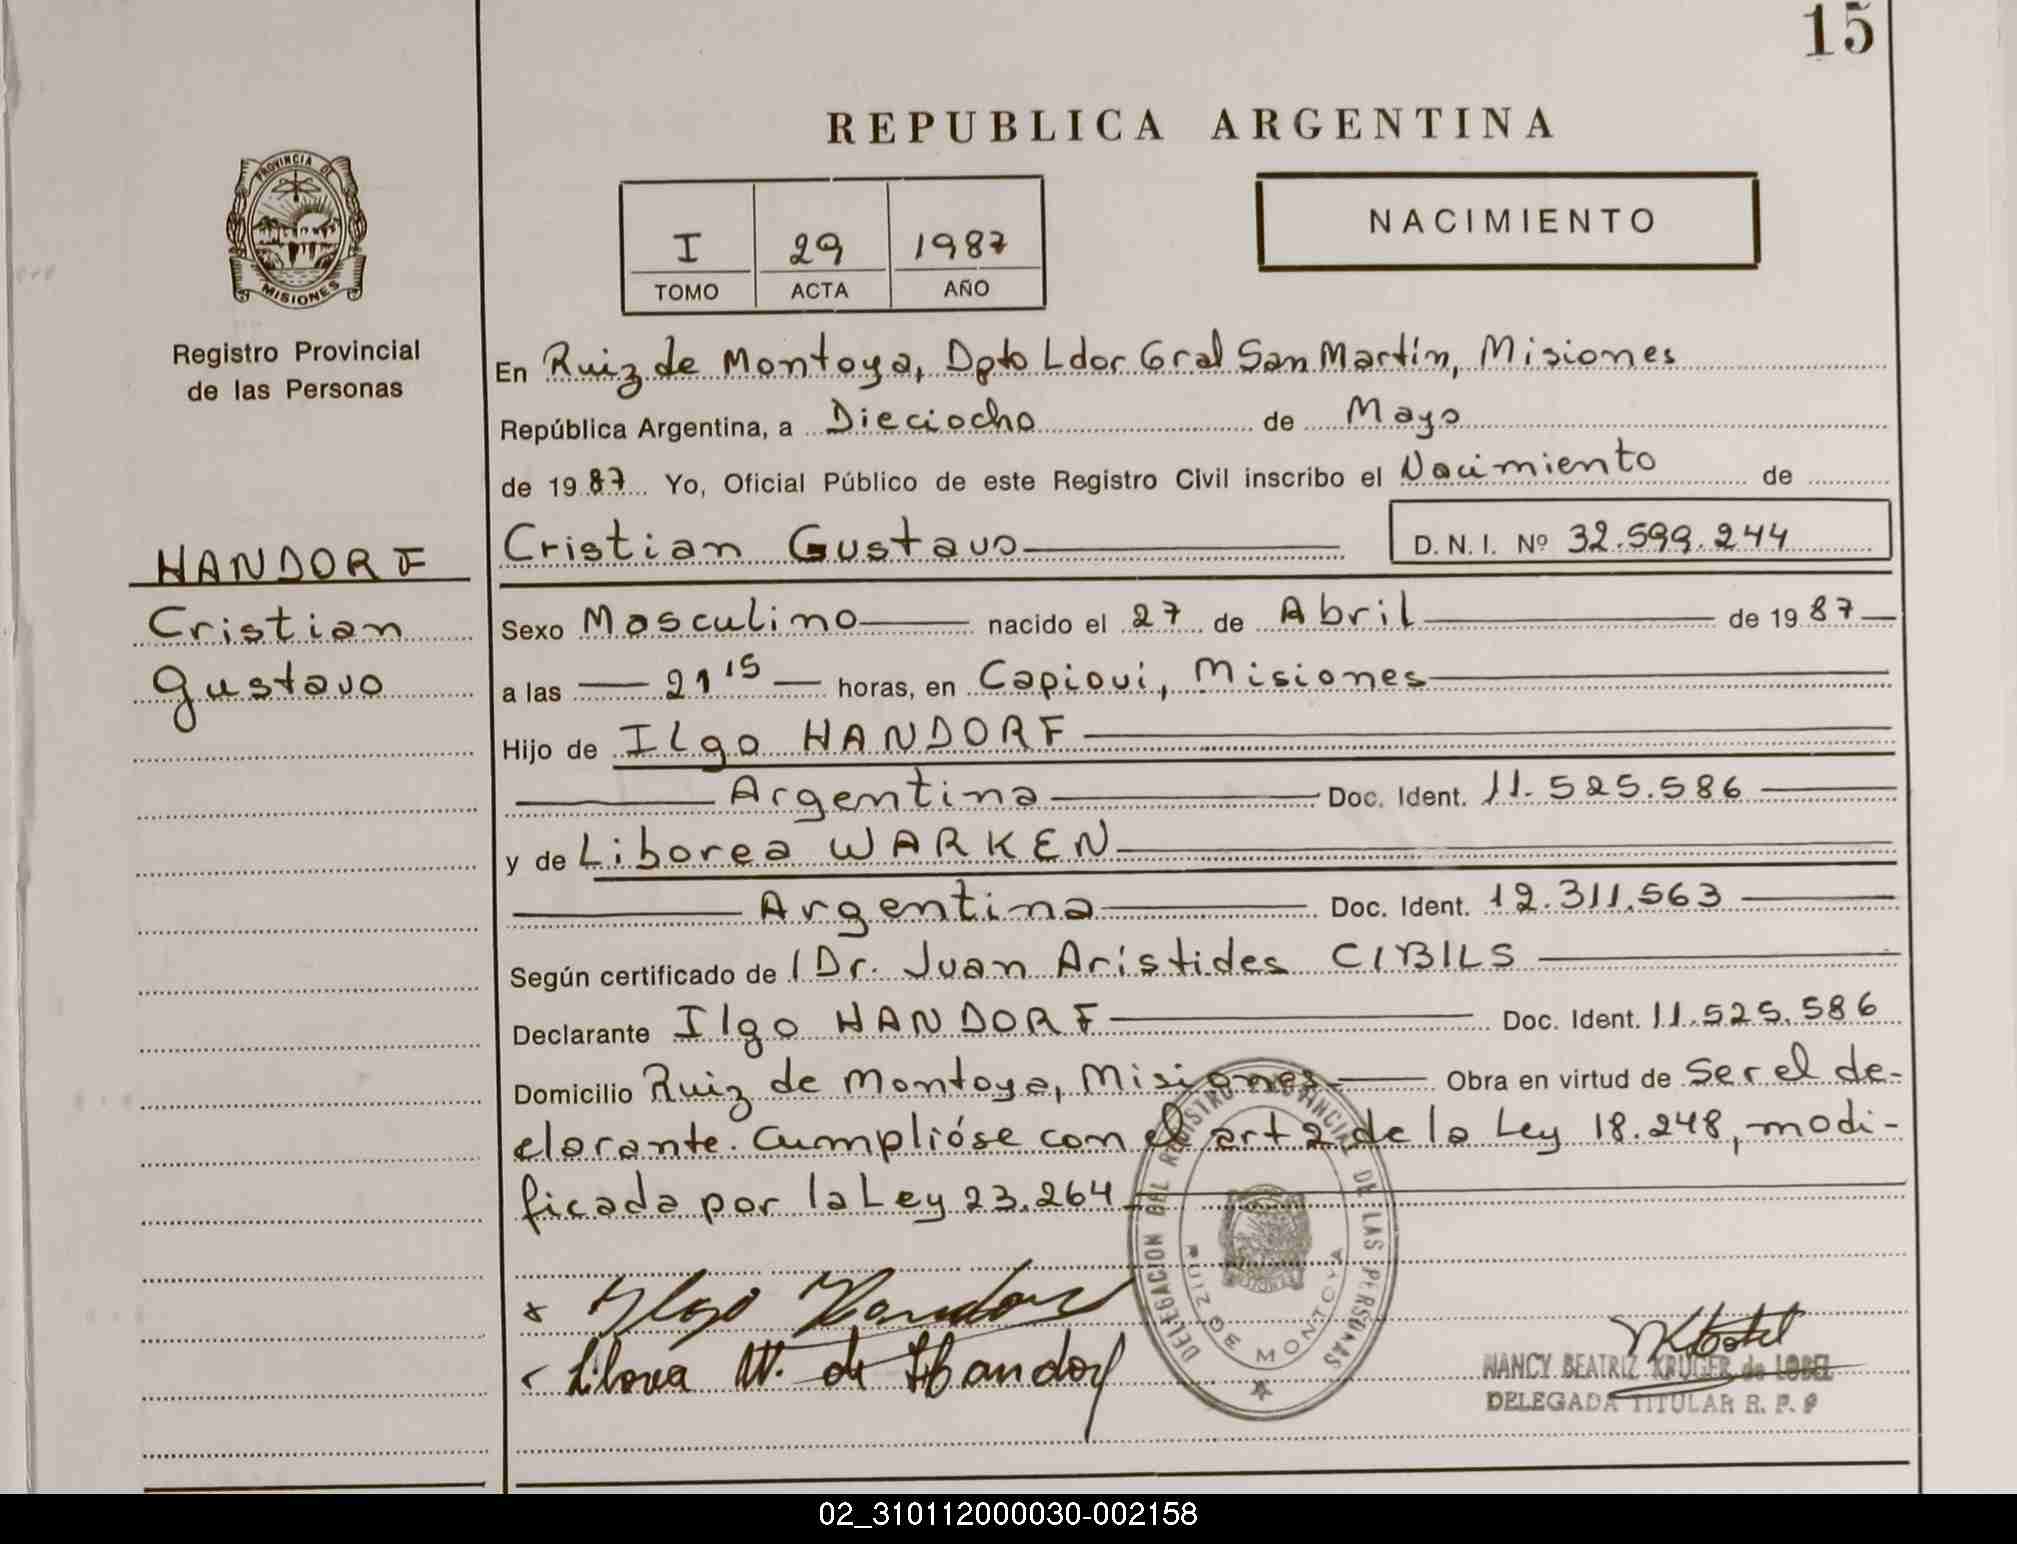 15
REPUBLICA ARGENTINA
PROVINCIA DE
MISIONES
Registro Provincial
de las Personas
I 29 1987
TOMO ACTA AÑO
NACIMIENTO
En Ruiz de Montoya, Dpto Ldor Gral San Martín, Misiones
República Argentina, a Dieciocho de Mayo
de 1987 Yo, Oficial Público de este Registro Civil inscribo el Nacimiento de
Cristian Gustavo D.N.I. Nº 32.599.244
HANDORF
Cristian
Gustavo
Sexo Masculino nacido el 27 de Abril de 1987
a las 21 15 horas, en Capioví, Misiones
Hijo de Ilgo HANDORF
Argentina Doc. Ident. 11.525.586
y de Liborea WARKEN
Argentina Doc. Ident. 12.311.563
Según certificado de Dr. Juan Arístides CIBILS
Declarante Ilgo HANDORF Doc. Ident. 11.525.586
Domicilio Ruiz de Montoya, Misiones Obra en virtud de Ser el de-
clarante. Cumplióse con el art 2 de la Ley 18.248, modi-
ficada por la Ley 23.264
DELEGACION DEL REGISTRO PROVINCIAL DE LAS PERSONAS
RUIZ DE MONTOYA
x Ilgo Handorf
W. de Handorf
NANCY BEATRIZ KRUGER de LOBEL
DELEGADA TITULAR R. P. P
02_310112000030-002158